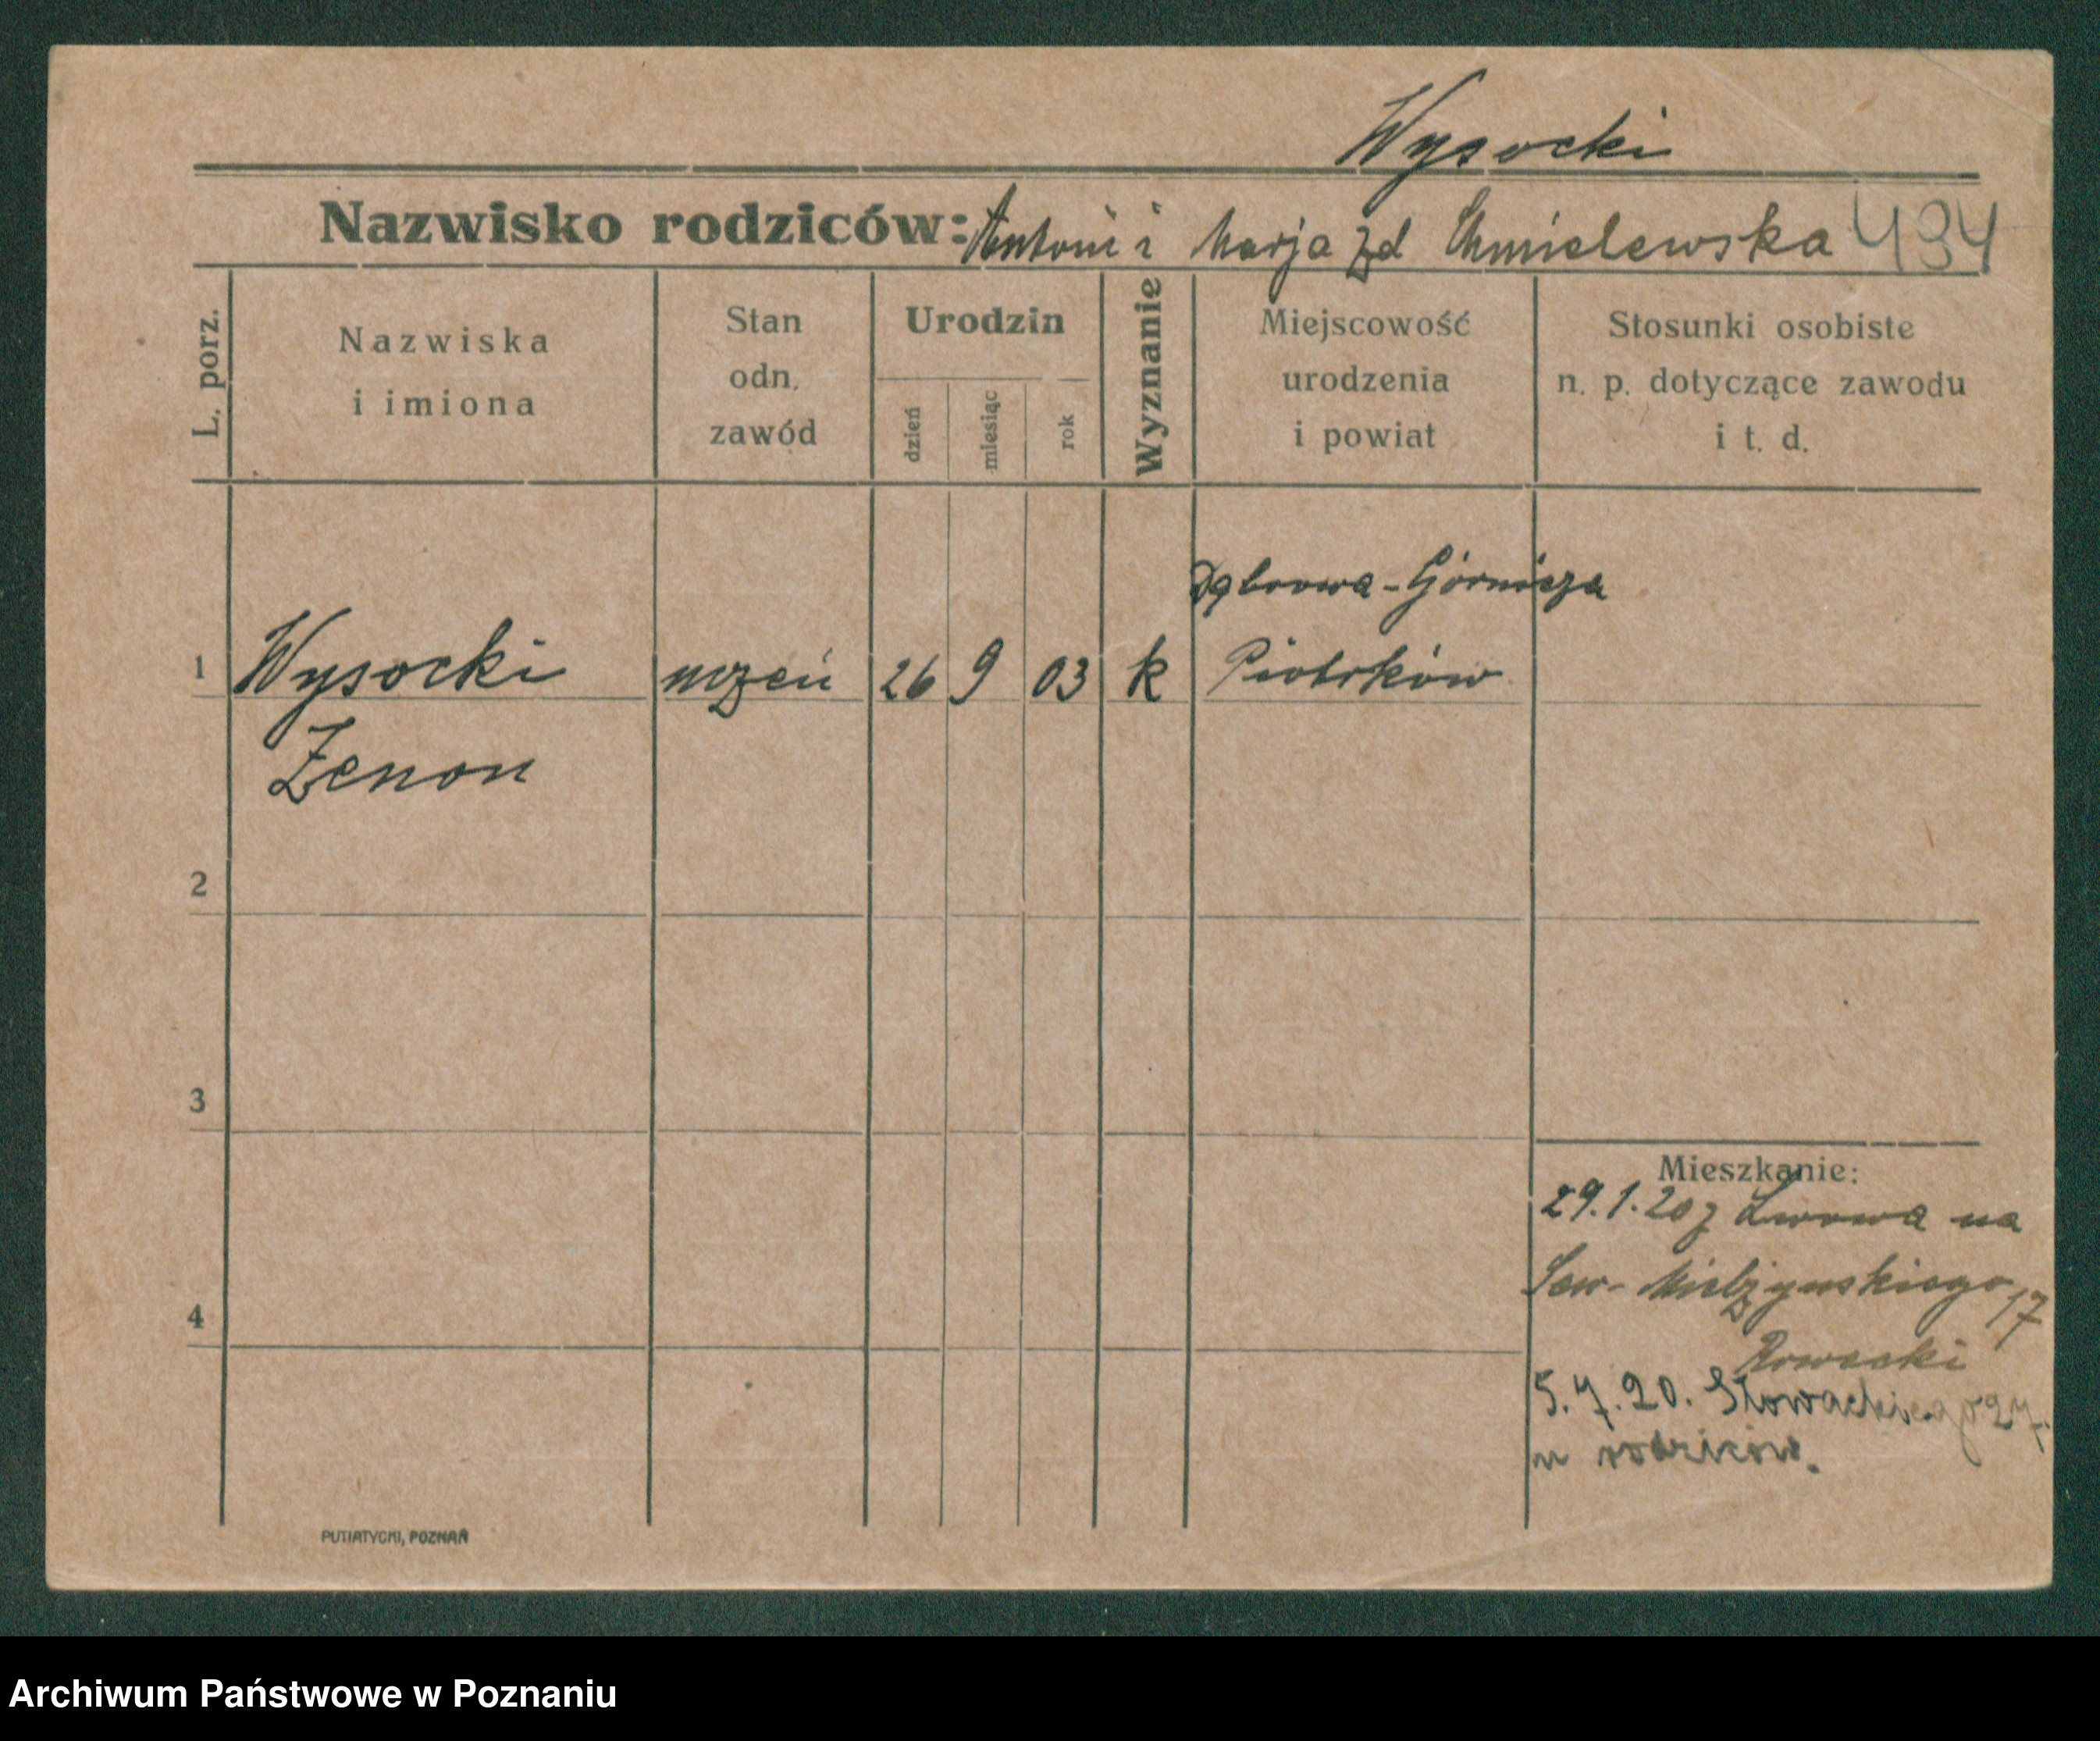 Wysocki
Nazwisko rodziców: Antoni i Marja zd Chmielewska 494
L. porz.
Nazwiska
i imiona
Stan
odn.
zawód
Urodzin
dzień
miesiąc
rok
Wyznanie
Miejscowość
urodzenia
i powiat
Stosunki osobiste
n. p. dotyczące zawodu
i t. d.
Dąbrowa-Górnicza
1 Wysocki uczeń 26 9 03 k Piotrków
Zenon
2
3
4
Mieszkanie:
29.1.20 z Lwowa na
Sew- Mielżynskiego 17
Nowacki
5.7.20. Słowackiego 27.
u rodziców.
PUTIATYCKI, POZNAŃ
Archiwum Państwowe w Poznaniu